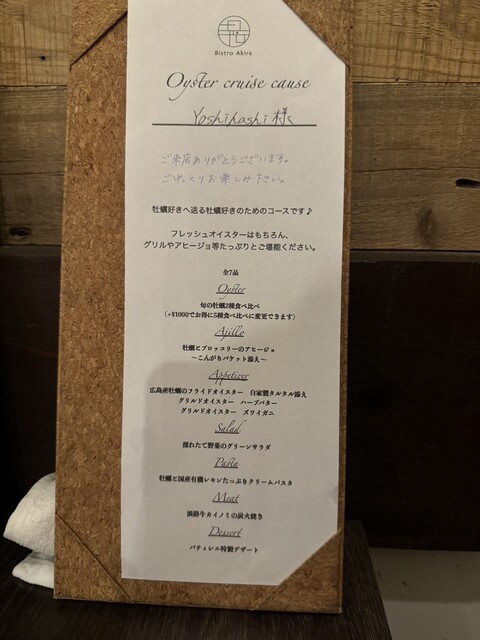 Bistro Akira
Oyster cruise cause
Yoshihashi 様
ご来店ありがとうございます。
ごゆっくりお楽しみ下さい。
牡蠣好きへ送る牡蠣好きのためのコースです♪
フレッシュオイスターはもちろん、
グリルやアヒージョ等たっぷりとご堪能ください。
全7品
Oyster
旬の牡蠣2種食べ比べ
(+¥1000でお得に5種食べ比べに変更できます)
Ajillo
牡蠣とブロッコリーのアヒージョ
〜こんがりバケット添え〜
Appetizer
広島産牡蠣のフライドオイスター 自家製タルタル添え
グリルドオイスター ハーブバター
グリルドオイスター ズワイガニ
Salad
採れたて野菜のグリーンサラダ
Pasta
牡蠣と国産有機レモンたっぷりクリームパスタ
Meat
淡路牛カイノミの炭火焼き
Dessert
パティシエ特製デザート